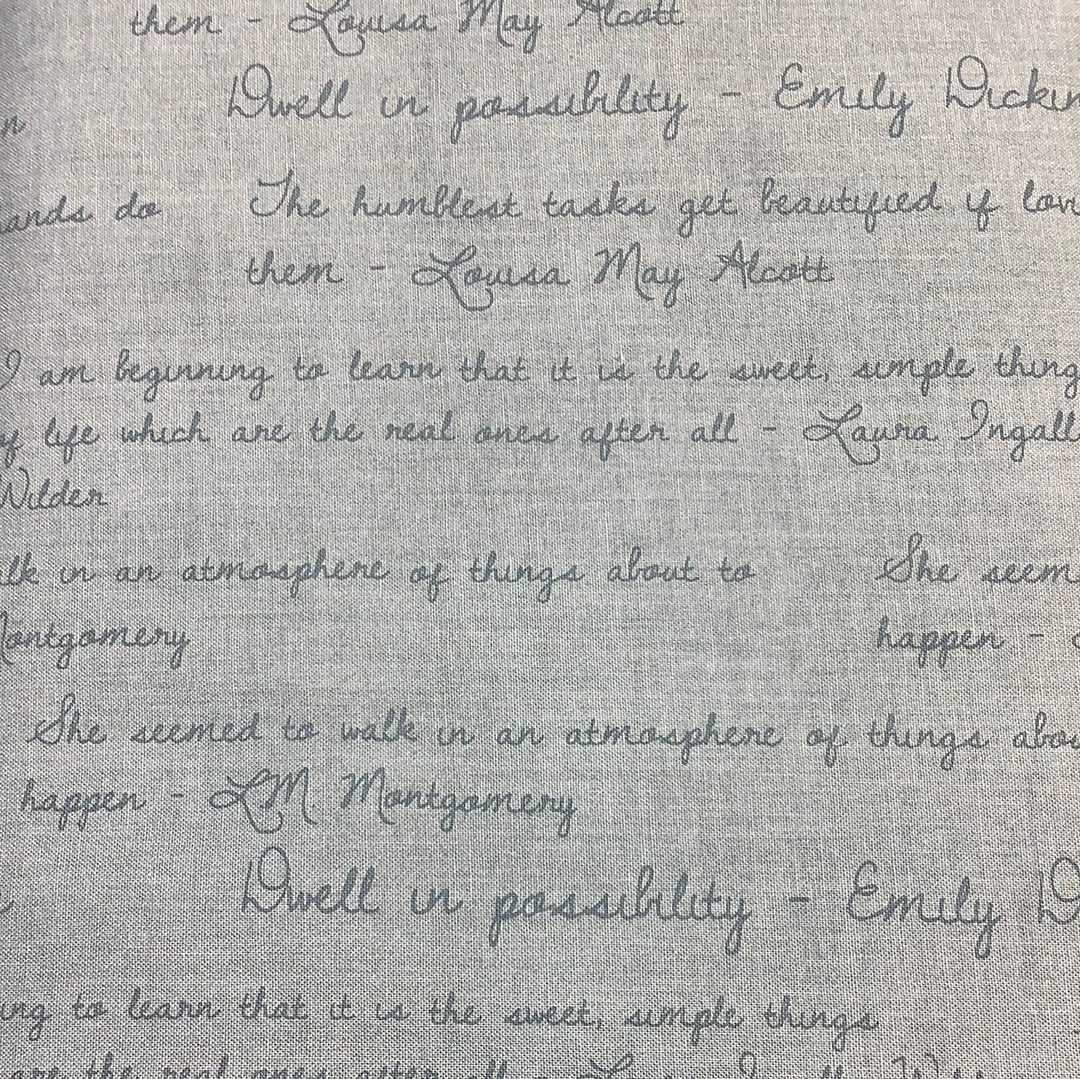 them - Louisa May Alcott
Dwell in possibility - Emily Dickin
n
ands do The humblest tasks get beautified if lovi
them - Louisa May Alcott
I am beginning to learn that it is the sweet, simple thing
of life which are the real ones after all - Laura Ingall
Wilder
lk in an atmosphere of things about to She seem
Montgomery happen -
She seemed to walk in an atmosphere of things abou
happen - LM Montgomery
Dwell in possibility - Emily D
ing to learn that it is the sweet, simple things
are the real ones after all